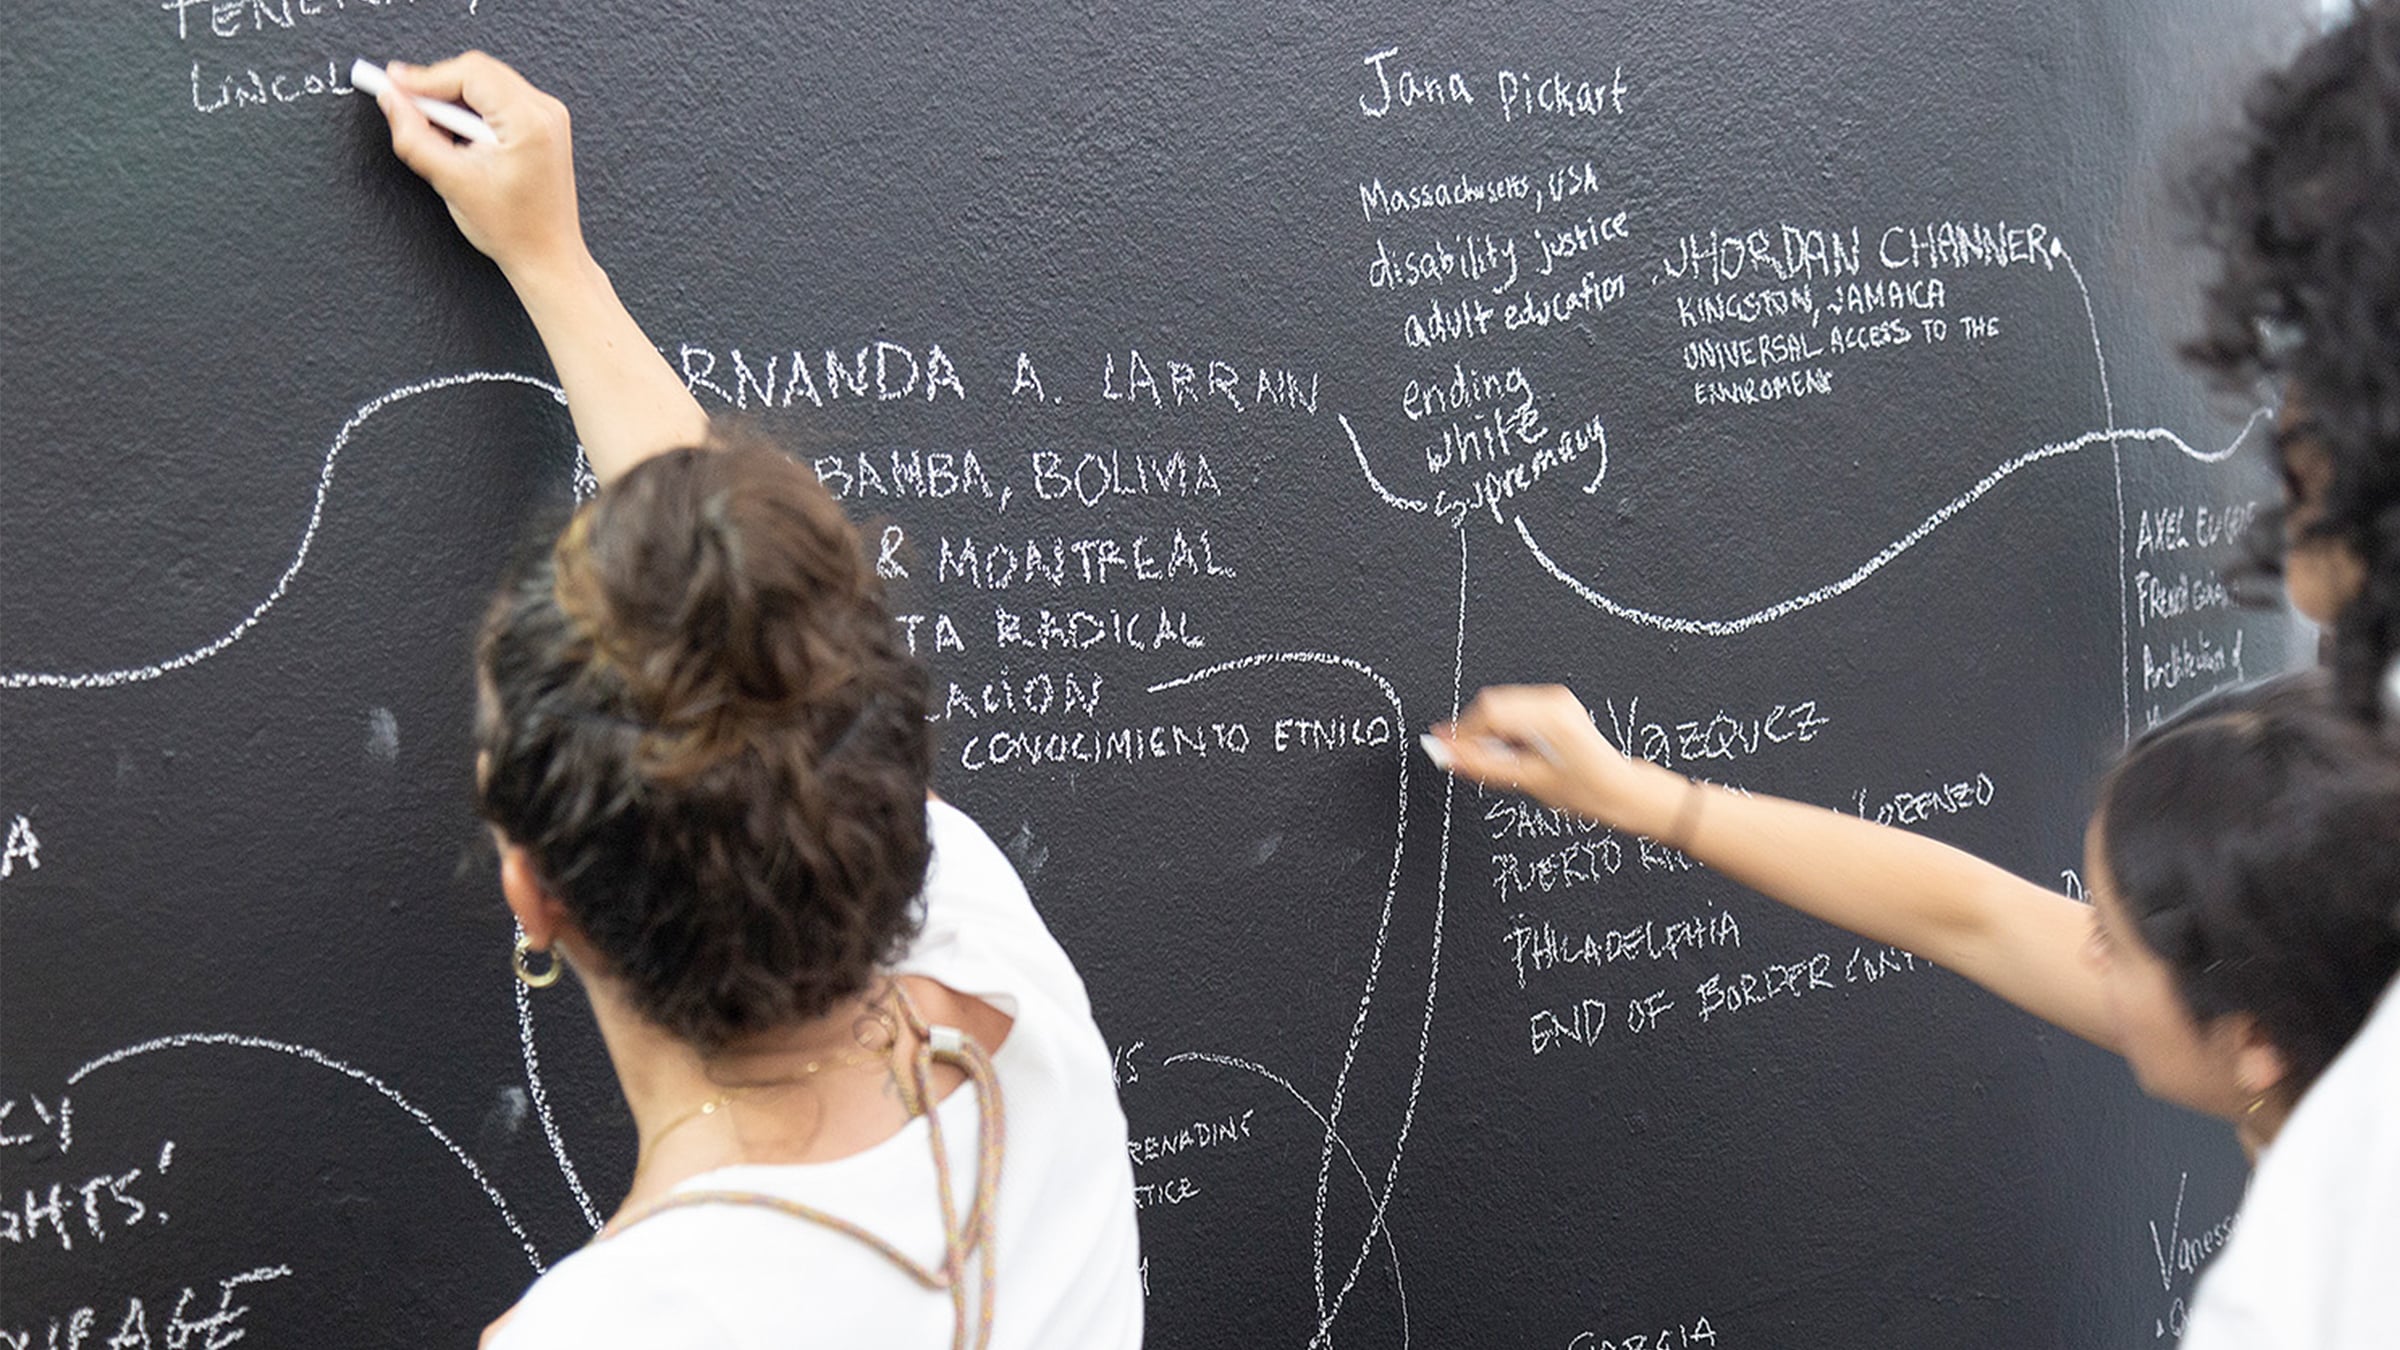 LINCOL
Jana Pickart
Massachusetts, USA
disability justice
adult education
ending
white
supremacy
JHORDAN CHANNER
KINGSTON, JAMAICA
UNIVERSAL ACCESS TO THE
ENVIROMENT
RNANDA A. LARRAIN
BAMBA, BOLIVIA
& MONTREAL
TA RADICAL
LACIÓN
CONOCIMIENTO ETNICO
AXEL
Vazquez
LORENZO
PUERTO
PHILADELPHIA
END OF BORDER
A
CY
GHTS!
RENADINE
TICE
GARCIA